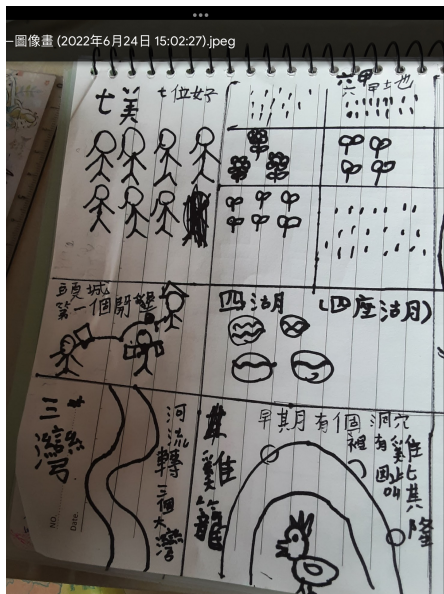 一圖像畫 (2022年6月24日 15:02:27).jpeg
七美
七位好
六甲土也
頭城
第一個開墾
四湖
(四座湖)
三灣
河流轉三個大灣
雞籠
早期有個洞穴
裡有雞
叫
隆
NO.
Date.